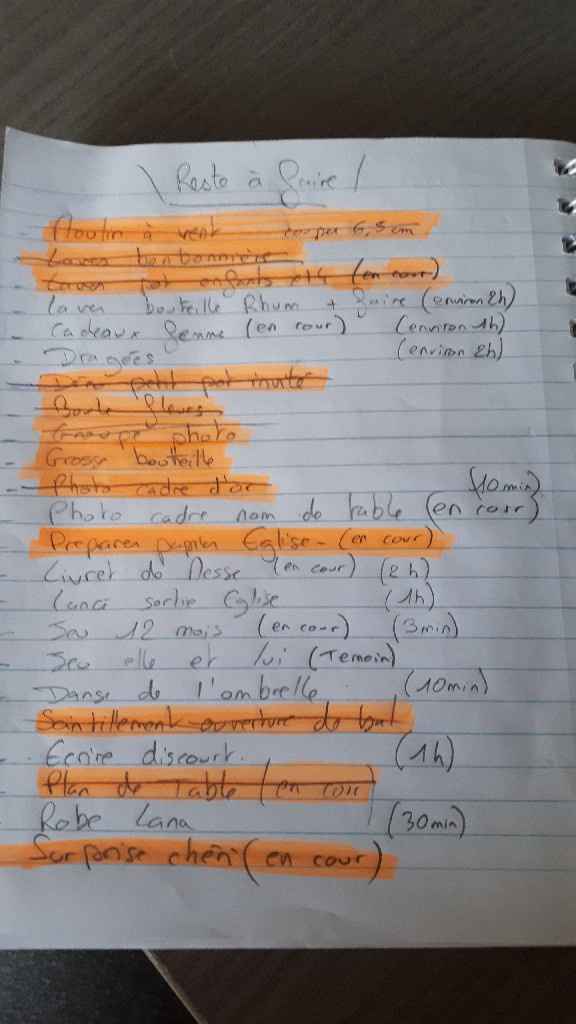 \ Reste à faire /
- Moulin à vent couper 6,5cm
- Laver bonbonnière
- Laver pot enfants et4 (en cour)
- Laver bouteille Rhum + faire (environ 2h)
- Cadeaux femme (en cour) (environ 1h)
- Dragées (environ 2h)
- petit pot invité
- Boule fleurs
- Groupe photo
- Grosse bouteille
- Photo cadre d'or
- Photo cadre nom de table (en cour) (10min)
- Preparer papier Eglise - (en cour)
- Livret de Messe (en cour) (2h)
- Lancé sortie Eglise (1h)
- Jeu 12 mois (en cour) (3min)
- Jeu elle et lui (Temoin)
- Danse de l'ombrelle (10min)
- ouverture de bal
- Ecrire discourt. (1h)
- Plan de Table (en cour
- Robe Lana (30min)
- Surprise chéri (en cour)